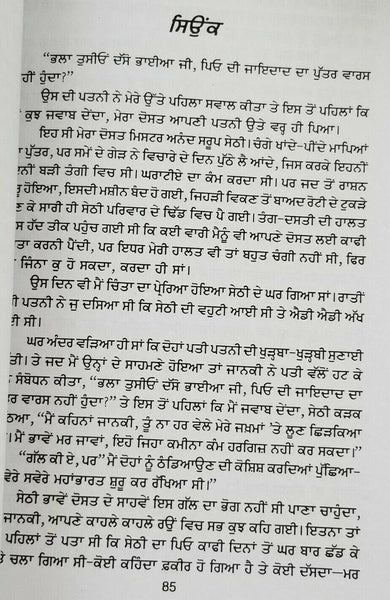 ਸਿਉਂਕ
“ਭਲਾ ਤੁਸੀਓਂ ਦੱਸੋ ਭਾਈਆ ਜੀ, ਪਿਓ ਦੀ ਜਾਇਦਾਦ ਦਾ ਪੁੱਤਰ ਵਾਰਸ
ਹੀਂ ਹੁੰਦਾ?”
ਉਸ ਦੀ ਪਤਨੀ ਨੇ ਮੇਰੇ ਉੱਤੇ ਪਹਿਲਾ ਸਵਾਲ ਕੀਤਾ ਤੇ ਇਸ ਤੋਂ ਪਹਿਲਾਂ ਕਿ
ਕੁਝ ਜਵਾਬ ਦੇਂਦਾ, ਮੇਰਾ ਦੋਸਤ ਆਪਣੀ ਪਤਨੀ ਉਤੇ ਵਰ੍ਹ ਹੀ ਪਿਆ।
ਇਹ ਸੀ ਮੇਰਾ ਦੋਸਤ ਮਿਸਟਰ ਅਨੰਦ ਸਰੂਪ ਸੇਠੀ। ਚੰਗੇ ਖਾਂਦੇ-ਪੀਂਦੇ ਮਾਪਿਆਂ
ਪੁੱਤਰ, ਪਰ ਸਮੇਂ ਦੇ ਗੇੜ ਨੇ ਵਿਚਾਰੇ ਦੇ ਦਿਨ ਪੁੱਠੇ ਲੈ ਆਂਦੇ, ਜਿਸ ਕਰਕੇ ਇਹਨੀਂ
ਬੜੀ ਤੰਗੀ ਵਿਚ ਸੀ। ਘਰਾਟੀਏ ਦਾ ਕੰਮ ਕਰਦਾ ਸੀ। ਪਰ ਜਦ ਤੋਂ ਰਾਸ਼ਨ
ਹੋਇਆ, ਇਸਦੀ ਮਸ਼ੀਨ ਬੰਦ ਹੋ ਗਈ, ਜਿਹੜੀ ਵਿਕਣ ਤੋਂ ਬਾਅਦ ਰੋਟੀ ਦੇ ਟੁਕੜੇ
ਕੇ ਸਾਰੀ ਹੀ ਸੇਠੀ ਪਰਿਵਾਰ ਦੇ ਢਿੱਡ ਵਿਚ ਪੈ ਗਈ। ਤੰਗ-ਦਸਤੀ ਦੀ ਹਾਲਤ
ਹੱਦ ਤੀਕ ਪਹੁੰਚ ਗਈ ਸੀ ਕਿ ਕਈ ਵਾਰੀ ਮੈਨੂੰ ਵੀ ਆਪਣੇ ਦੋਸਤ ਲਈ ਕਾਫੀ
ਕਰਨੀ ਪੈਂਦੀ, ਪਰ ਇਧਰ ਮੇਰੀ ਹਾਲਤ ਵੀ ਤਾਂ ਬਹੁਤ ਚੰਗੀ ਨਹੀਂ ਸੀ, ਫਿਰ
ਜਿੰਨਾ ਕੁ ਹੋ ਸਕਦਾ, ਕਰਦਾ ਹੀ ਸਾਂ।
ਉਸ ਦਿਨ ਵੀ ਮੈਂ ਚਿੰਤਾ ਦਾ ਪ੍ਰੇਰਿਆ ਹੋਇਆ ਸੇਠੀ ਦੇ ਘਰ ਗਿਆ ਸਾਂ। ਰਾਤੀਂ
ਪਤਨੀ ਨੇ ਜੁ ਦਸਿਆ ਸੀ ਕਿ ਸੇਠੀ ਦੀ ਵਹੁਟੀ ਆਈ ਸੀ ਤੇ ਐਡੀ ਐਡੀ ਅੱਖ
ਸੀ।
ਘਰ ਅੰਦਰ ਵੜਿਆ ਹੀ ਸਾਂ ਕਿ ਦੋਹਾਂ ਪਤੀ ਪਤਨੀ ਦੀ ਖੁੜ੍ਹਬਾ-ਖੁੜ੍ਹਬੀ ਸੁਣਾਈ
ਤੇ ਜਦ ਮੈਂ ਉਨ੍ਹਾਂ ਦੇ ਸਾਹਮਣੇ ਹੋਇਆ ਤਾਂ ਜਾਨਕੀ ਨੇ ਪਤੀ ਵੱਲੋਂ ਹਟ ਕੇ
ਸੰਬੋਧਨ ਕੀਤਾ, “ਭਲਾ ਤੁਸੀਓਂ ਦੱਸੋ ਭਾਈਆ ਜੀ, ਪਿਓ ਦੀ ਜਾਇਦਾਦ ਦਾ
ਵਾਰਸ ਨਹੀਂ ਹੁੰਦਾ?” ਤੇ ਇਸ ਤੋਂ ਪਹਿਲਾਂ ਕਿ ਮੈਂ ਜਵਾਬ ਦੇਂਦਾ, ਸੇਠੀ ਕੜਕ
“ਮੈਂ ਕਹਿਨਾਂ ਜਾਨਕੀ, ਤੂੰ ਨਾ ਹਰ ਵੇਲੇ ਮੇਰੇ ਜ਼ਖ਼ਮਾਂ ’ਤੇ ਲੂਣ ਛਿੜਕਿਆ
ਮੈਂ ਭਾਵੇਂ ਮਰ ਜਾਵਾਂ, ਇਹੋ ਜਿਹਾ ਕਮੀਨਾ ਕੰਮ ਹਰਗਿਜ਼ ਨਹੀਂ ਕਰ ਸਕਦਾ।”
“ਗੱਲ ਕੀ ਏ, ਪਰ” ਮੈਂ ਦੋਹਾਂ ਨੂੰ ਠੰਡਿਆਉਣ ਦੀ ਕੋਸ਼ਿਸ਼ ਕਰਦਿਆਂ ਪੁੱਛਿਆ-
ਸਵੇਰੇ ਮਹਾਂਭਾਰਤ ਸ਼ੁਰੂ ਕਰ ਰੱਖਿਆ ਸੀ।”
ਸੇਠੀ ਭਾਵੇਂ ਦੋਸਤ ਦੇ ਸਾਹਵੇਂ ਇਸ ਗੱਲ ਦਾ ਭੋਗ ਨਹੀਂ ਸੀ ਪਾਣਾ ਚਾਹੁੰਦਾ,
ਜਾਨਕੀ, ਆਪਣੇ ਕਾਹਲੇ ਕਾਹਲੇ ਰਉਂ ਵਿਚ ਸਭ ਕੁਝ ਕਹਿ ਗਈ। ਇਤਨਾ ਤਾਂ
ਪਹਿਲਾਂ ਤੋਂ ਪਤਾ ਸੀ ਕਿ ਸੇਠੀ ਦਾ ਪਿਓ ਕਾਫੀ ਦਿਨਾਂ ਤੋਂ ਘਰ ਬਾਰ ਛੱਡ ਕੇ
ਚਲਾ ਗਿਆ ਸੀ-ਕੋਈ ਕਹਿੰਦਾ ਫ਼ਕੀਰ ਹੋ ਗਿਆ ਹੈ ਤੇ ਕੋਈ ਦੱਸਦਾ—ਮਰ
85